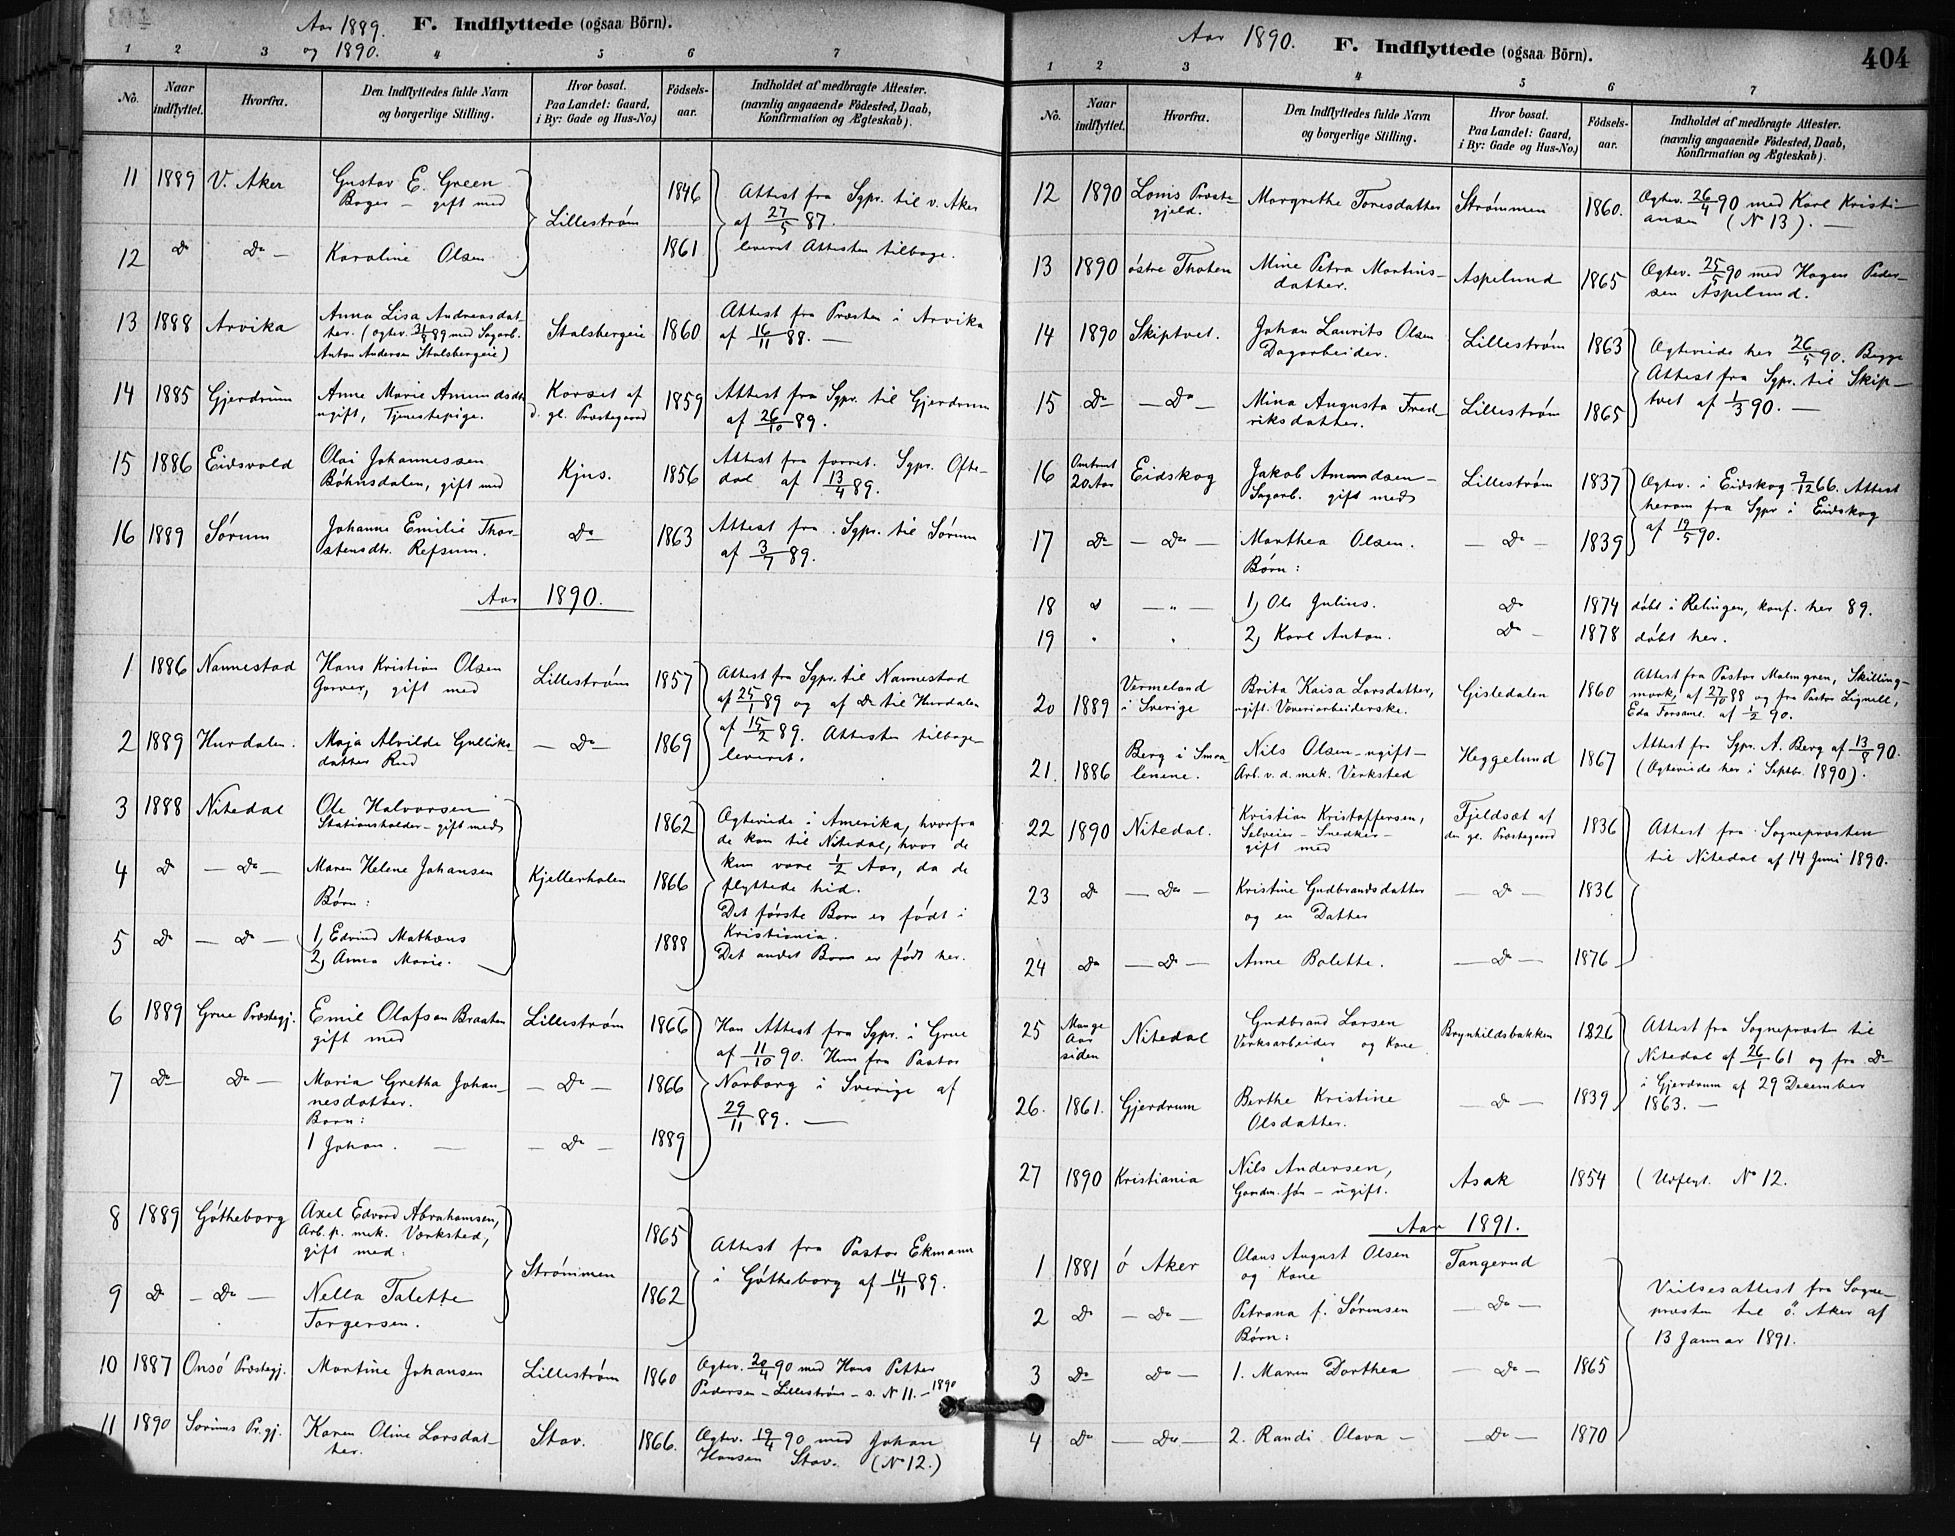 Aar 1889.
og 1890.
F. Indflyttede (ogsaa Börn).
1 2 3 4 5 6 7
No. Naar indflyttet. Hvorfra. Den Indflyttedes fulde Navn og borgerlige Stilling. Hvor bosat. Paa Landet: Gaard, i By: Gade og Hus-No.) Födsels-aar. Indholdet af medbragte Attester. (navnlig angaaende Födested, Daab, Konfirmation og Ægteskab).
11 1889 V. Aker Gustav E. Green
Bager – gift med Lillestrøm 1846 Attest fra Sgpr. til v. Aker
af 27/5 87.
12 Do Do – Karoline Olsen 1861 leveret Attesten tilbage.
13 1888 Arvika Anna Lisa Andreasdat-
ter. (Ægtev. 31/3 89 med Sagarb.
Anton Andersen Stalsbergeie) Stalsbergeie 1860 Attest fra Præsten i Arvika
af 16/11 88. –
14 1885 Gjerdrum Anne Marie Amundsdtr
ugift, Tjenestepige. Korset af
d. gl. Præstegaard 1859 Attest fra Sgpr. til Gjerdrum
af 26/10 89.
15 1886 Eidsvold Olai Johannessen
Bøhnsdalen, gift med Kjus. 1856 Attest fra forret. Sgpr. Ofte-
dal af 13/4 89.
16 1889 Sørum Johanne Emilie Thor-
stensdtr. Refsum. Do 1863 Attest fra Sgpr. til Sørum
af 3/7 89.
Aar 1890.
1 1886 Nannestad Hans Kristian Olsen
Garver, gift med Lillestrøm 1857 Attest fra Sgpr. til Nannestad
af 25/1 89 og af Do til Hurdalen
2 1889 Hurdalen. Maja Alvilde Gulliks-
datter Rud – Do – 1869 af 15/2 89. Attesten tilbage-
leveret.
3 1888 Nitedal Ole Halvorsen
Stationsholder – gift med Kjellerholen 1862 Ægteviede i Amerika, hvorfra
de kom til Nitedal, hvor de
4 Do – Do – Maren Helene Johansen
Børn: 1866 kun vare 1/2 Aar, da de
flyttede hid.
Det første Barn er født i
5 Do – Do – 1, Edvind Mathæus
2, Anna Marie. 1888 Kristiania.
Det andet Barn er født her.
6 1889 Grue Præstegj. Emil Olafsen Braaten
gift med Lillestrøm 1866 Han Attest fra Sgpr. i Grue
af 11/10 90. Hun fra Pastor
7 Do Do – Maria Gretha Johan-
nesdatter.
Barn: – Do – 1866 Norborg i Sverige af
29/11 89. –
1 Johan. – – Do – 1889
8 1889 Götheborg Axel Edvard Abrahamsen,
Arb. p. mek. Værksted,
gift med: Strømmen 1865 Attest fra Pastor Ekmann
i Götheborg af 14/11 89.
9 Do – Do – Nella Talette
Torgersen. 1862
10 1887 Onsö Præstegj. Martine Johansen Lillestrøm 1860 Ægtev. 20/4 90 med Hans Petter
Pedersen – Lillestrøm – s. N 11. – 1890
11 1890 Sørums Pr.gj. Karen Oline Larsdat-
ter. Stav. 1866. Ægtev. 19/4 90 med Johan
Hansen Stav. (No 12.)
Aar 1890.
F. Indflyttede (ogsaa Börn).
404
1 2 3 4 5 6 7
No. Naar indflyttet. Hvorfra. Den Indflyttedes fulde Navn og borgerlige Stilling. Hvor bosat. Paa Landet: Gaard, i By: Gade og Hus-No.) Födsels-aar. Indholdet af medbragte Attester. (navnlig angaaende Födested, Daab, Konfirmation og Ægteskab).
12 1890 Loms Præste-
gjeld. Margrethe Toresdatter Strømmen 1860. Ægtev. 26/4 90 med Karl Kristi-
ansen (N 13). –
13 1890 østre Thoten Mine Petra Martins-
datter. Aspelund 1865 Ægtev. 25/5 90 med Hagen Peder-
sen Aspelund.
14 1890 Skiptvet. Johan Laurits Olsen
Dagarbeider. Lillestrøm 1863 Ægteviede her 26/5 90. Begge
Attest fra Sgpr. til Skip-
15 Do – Do Mina Augusta Fred-
riksdatter. Lillestrøm 1865 tvet af 1/3 90. –
16 Omtrent
20 Aar Eidskog Jakob Amundsen –
Sagarb. gift med Lillestrøm 1837 Ægtev. i Eidskog 9/12 66. Attest
herom fra Sgpr i Eidskog
17 Do – Do – Marthea Olsen.
Børn: – Do – 1839 af 19/5 90.
18 d – " – 1, Ole Julius. Do 1874 døbt i Relingen, konf. her 89.
19 " " 2, Karl Anton. Do – 1878 døbt her.
20 1889 Vermeland
i Sverige Brita Kaisa Larsdatter,
ugift. Væveriarbeiderske. Gisledalen 1860 Attest fra Pastor Malmgren, Skilling-
mark, af 27/10 88 og fra Pastor Lignell,
Eda Forsaml. af 1/2 90.
21. 1886 Berg i Smaa-
lenene. Nils Olsen – ugift –
Arb. v. d. mek. Verksted Heggelund 1867 Attest fra Sgpr. A. Berg af 13/8 90.
(Ægteviede her i Septbr. 1890).
22 1890 Nitedal. Kristian Kristoffersen,
Selveier – Snedker –
gift med Fjeldsæt af
den gl. Præstegaard 1836 Attest fra Sognepræsten
til Nitedal af 14 Juni 1890.
23 Do – Do – Kristine Gudbrandsdatter
og en Datter – Do – 1836
24 Do – Do – Anne Bolette. – Do – 1876
25 Mange
Aar
siden Nitedal Gudbrand Larsen
Verksarbeider og Kone Brynhildsbakken 1826 Attest fra Sognepræsten til
Nitedal af 26/1 61 og fra Do
26. 1861. Gjerdrum Berthe Kristine
Olsdatter. – Do – 1839 i Gjerdrum af 29 December
1863. –
27 1890 Kristiania Nils Andersen,
Gaardm. søn – ugift. Asak 1854 (Udflyt. No 12.
Aar 1891.
1 1881 ö Aker Olaus August Olsen
og Kone Tangerud Vielsesattest fra Sogne-
præsten til ö. Aker af
2 Do – Do – Petrana f. Sørensen
Børn: – Do – 13 Januar 1891.
3 Do Do – 1. Maren Dorthea – Do – 1865
4 Do – Do – 2. Randi Olava – – Do – 1870